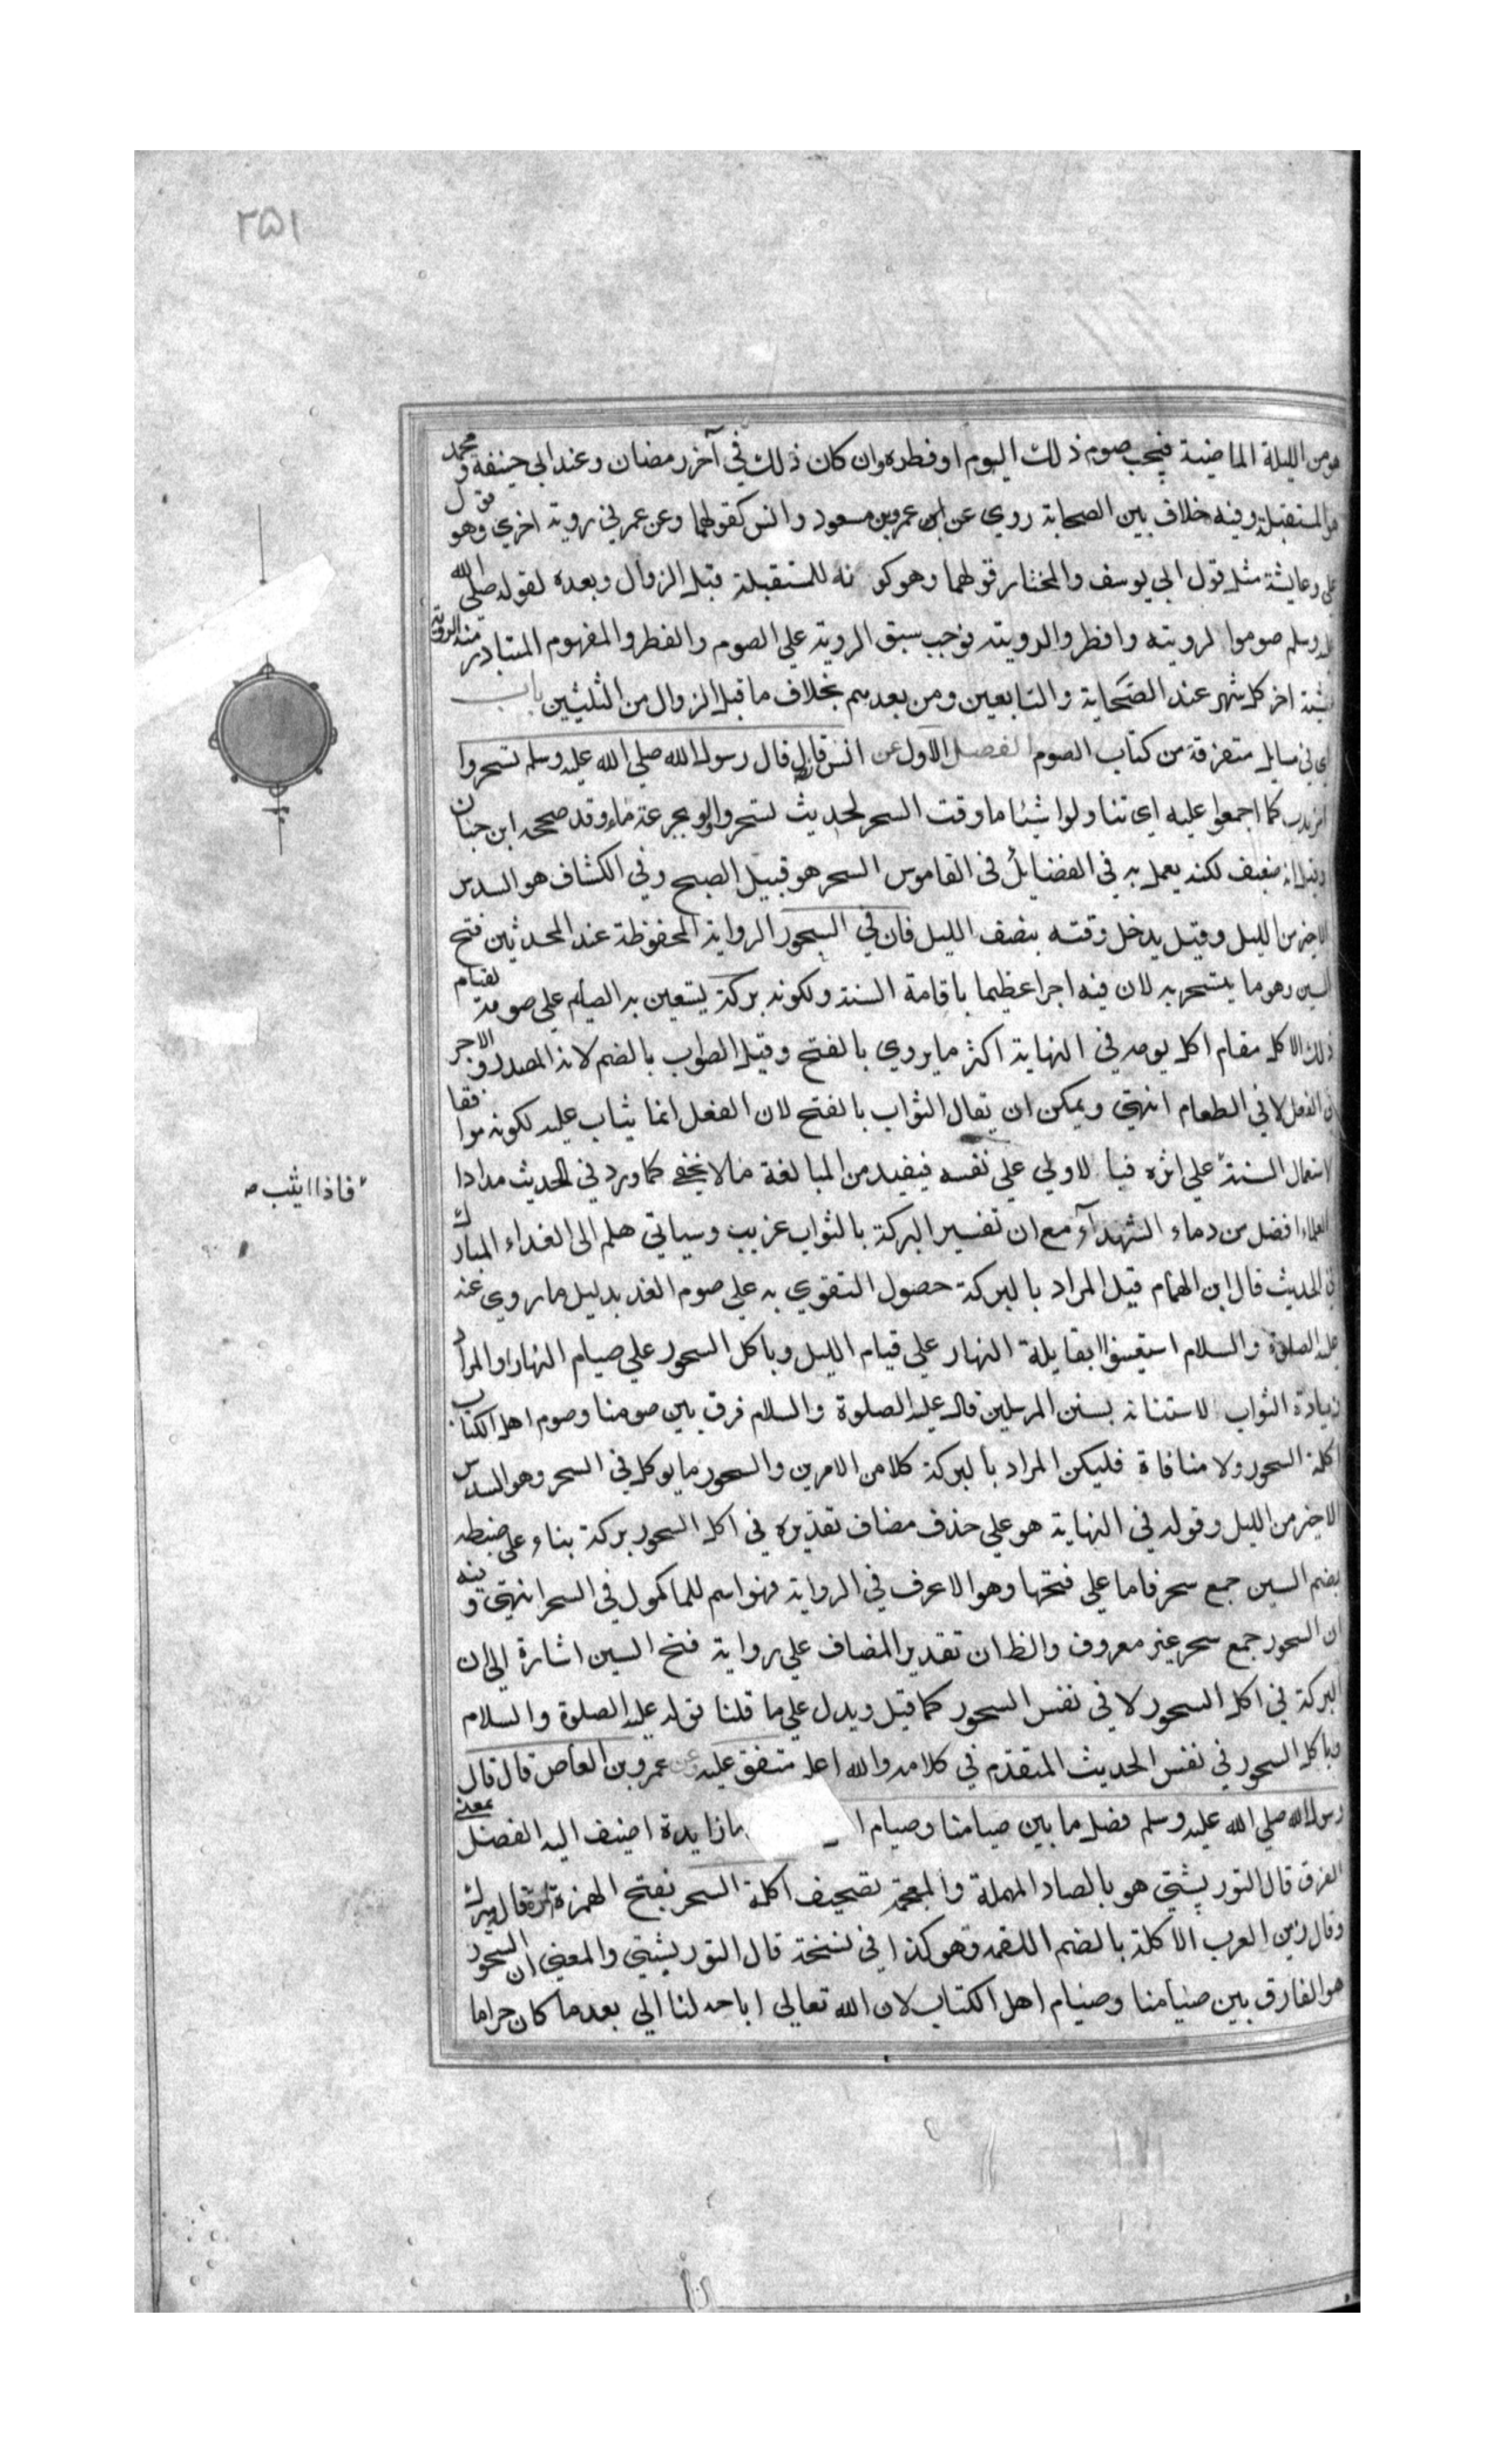 ٢٥١
هو من الليلة الماضية فيجب صوم ذلك اليوم او فطره وان كان ذلك في آخر رمضان وعند ابي حنيفة ومحمد
هو للمستقبلة وفيه خلاف بين الصحابة روي عن ابن عمرو بن مسعود وانس كقولهما وعن عمر في روية اخري وهو قول
علي وعايشة مثل قول ابي يوسف والمختار قولهما وهو كو نه للمستقبلة قبل الزوال وبعده لقوله صلى الله
عليه وسلم صوموا لرويته وافطروا لرويته فوجب سبق الروية علي الصوم والفطر والمفهوم المتبادر منه الروية
عشية اخر كل شهر عند الصحابة والتابعين ومن بعدهم بخلاف ما قبل الزوال من الثلثين باب
اي في مسايل متفرقة من كتاب الصوم الفصل الاول عن انس قال قال رسول الله صلي الله عليه وسلم تسحروا
امر ندب كما اجمعوا عليه اي تناولوا شيئا ما وقت السحر لحديث تسحروا ولو بجرعة ماء وقد صححه ابن حبان
وقيل انه ضعيف لكنه يعمل به في الفضايل في القاموس السحر هو قبيل الصبح وفي الكشاف هو السدس
الاخير من الليل وقيل يدخل وقته بنصف الليل فان في السحور الرواية المحفوظة عند المحدثين فتح
السين وهو ما يتسحر به لان فيه اجرا عظيما باقامة السنة ولكونه بركة يستعين به الصايم علي صومه لقيام
ذلك الاكل مقام اكل يومه في النهاية اكثر ما يروي بالفتح وقيل الصواب بالضم لانه المصدر والاجر
في الفعل لا في الطعام انتهي ويمكن ان يقال الثواب بالفتح لان الفعل انما يثاب عليه لكونه موافقا
لاستعمال السنة علي اثره فبا لاولي علي نفسه فيفيد من المبالغة ما لا يخفي كما ورد في الحديث مدادا
فاذا اثيب صح
العلماء افضل من دماء الشهداء مع ان تفسير البركة بالثواب غريب وسياتي هلم الى الغداء المبارك
في الحديث قال ابن الهمام قيل المراد بالبركة حصول التقوي به علي صوم الغد بدليل ما روي عنه
عليه الصلوة والسلام استعينوا بقايلة النهار علي قيام الليل وباكل السحور علي صيام النهار او المراد
زيادة الثواب لاستنانه بسنن المرسلين قال عليه الصلوة والسلام فرق بين صومنا وصوم اهل الكتاب
اكلة السحور ولا منافاة فليكن المراد بالبركة كلا من الامرين والسحور ما يوكل في السحر وهو السدس
الاخير من الليل وقوله في النهاية هو علي حذف مضاف تقديره في اكل السحور بركة بناء علي ضبطه
بضم السين جمع سحر فاما علي فتحها وهو الاعرف في الرواية فهو اسم للماكول في السحر انتهي وفيه
ان السحور جمع سحر غير معروف والظ ان تقدير المضاف علي رواية فتح السين اشارة الي ان
البركة في اكل السحور لا في نفس السحور كما قيل ويدل علي ما قلنا قوله عليه الصلوة والسلام
وباكل السحور في نفس الحديث المتقدم في كلامه والله اعلم متفق عليه وعن عمرو بن العاص قال قال
رسول الله صلي الله عليه وسلم فضل ما بين صيامنا وصيام ا ما زايدة اضيف اليه الفضل بمعنى
الفرق قال التوربشتي هو بالصاد المهملة والمعجمة تصحيف اكلة السحر بفتح الهمزة قال ميرك
وقال زين العرب الاكلة بالضم اللقمة وهو كذا في نسخة قال التوربشتي والمعني ان السحور
هو الفارق بين صيامنا وصيام اهل الكتاب لان الله تعالي اباحه لنا الي بعد ما كان حراما